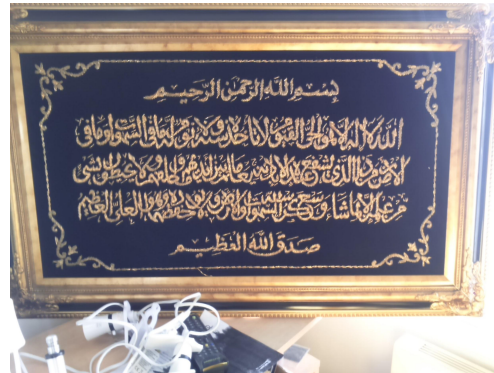 بسم الله الرحمن الرحيم
الله لا إله إلا هو الحي القيوم لا تأخذه سنة ولا نوم له ما في السموات وما في
الأرض من ذا الذي يشفع عنده إلا بإذنه يعلم ما بين أيديهم وما خلفهم ولا يحيطون بشيء
من علمه إلا بما شاء وسع كرسيه السموات والأرض ولا يؤده حفظهما وهو العلي العظيم
صدق الله العظيم